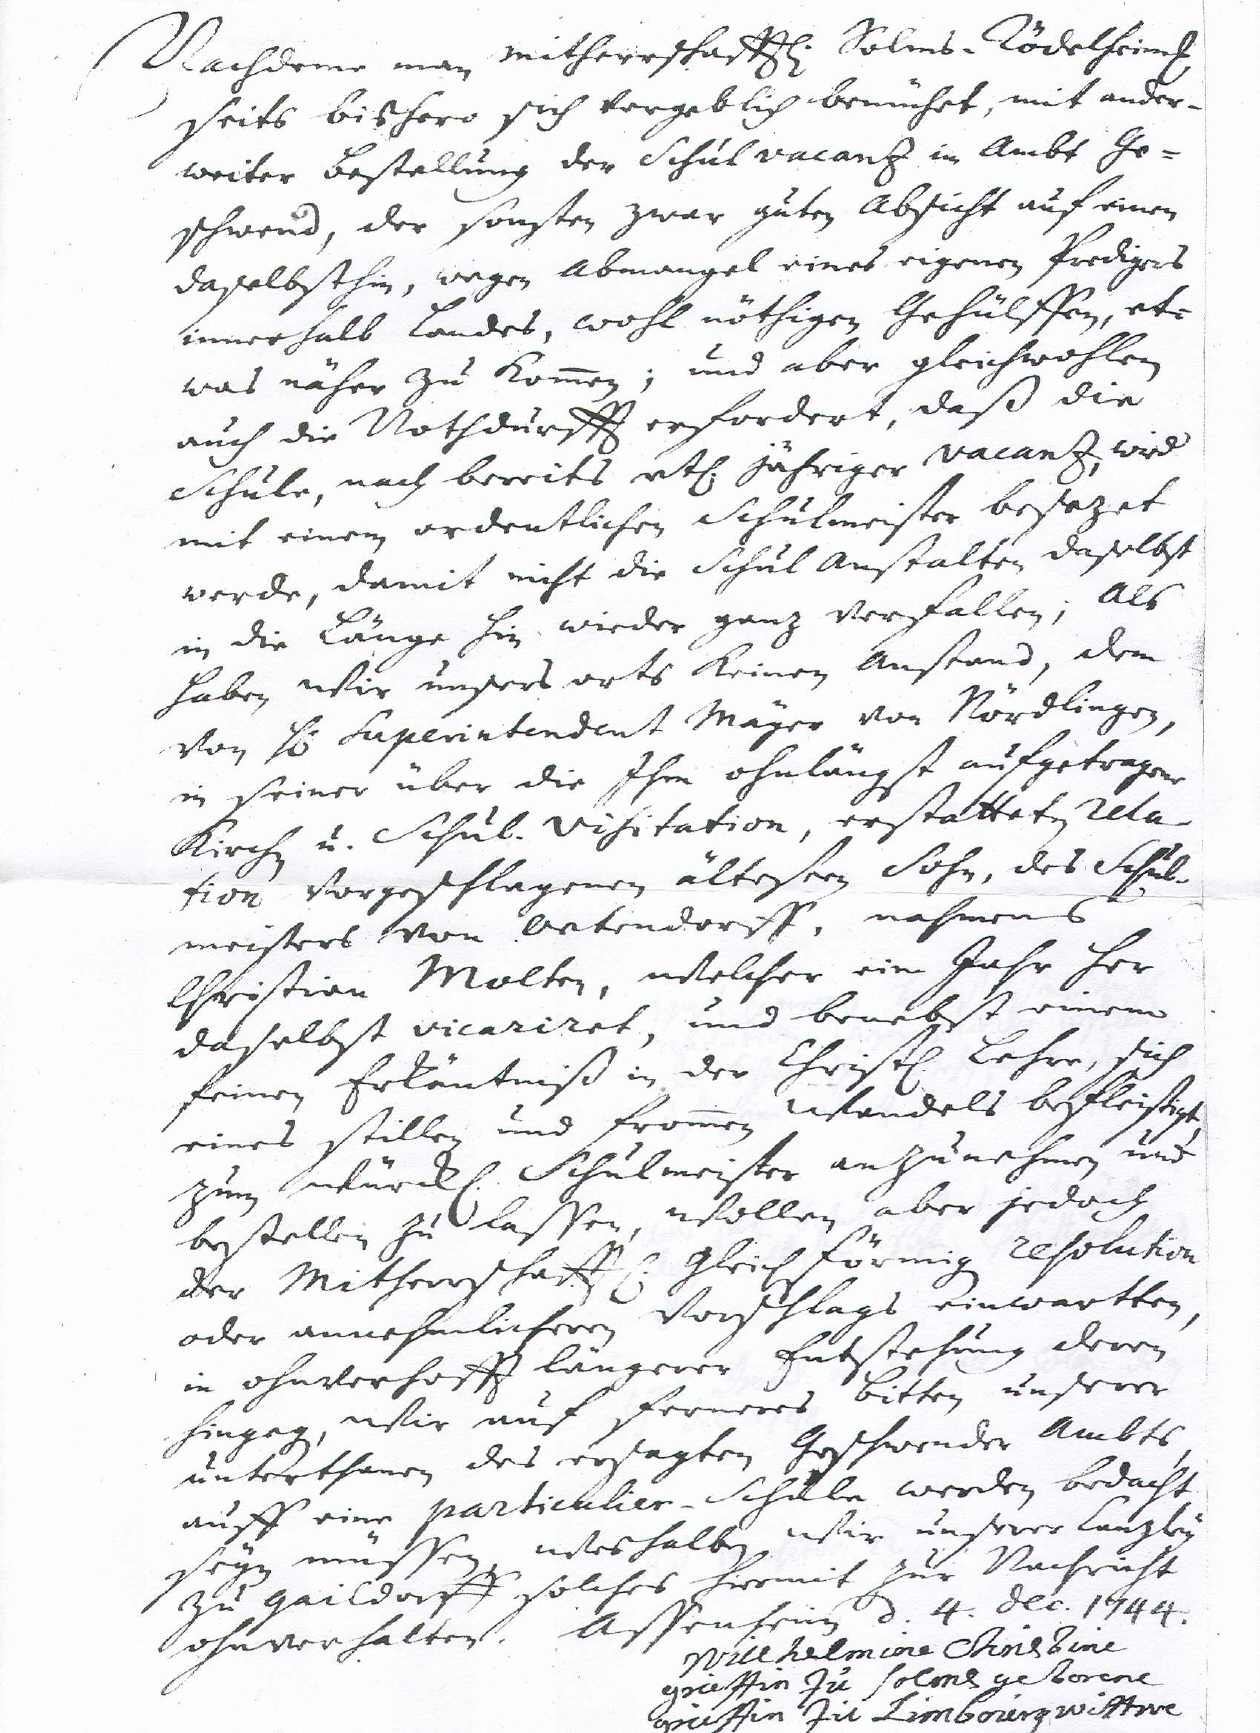 Nachdeme man Mitherrschafftl. Solms-Rödelheiml.
seits bishero sich vergeblich bemühet, mit ander-
weiter Bestellung der Schul vacanz im Ambt Ge=
schwend, der sonsten zwar guten Absicht auf einen
daselbsthin, wegen Abmangel eines eigenen Predigers
innerhalb Landes, wohl nöthigen Gehülffen, et=
was näher zu kommen; und aber gleichwohlen
auch die Nothdurfft erfordert, daß die
Schule, nach bereits etl. jähriger vacanz, wied
mit einem ordentlichen Schulmeister besezet
werde, damit nicht die Schul Anstalten daselbst
in die Länge hin wieder ganz verfallen; Als
haben Wir unsers orts keinen Anstand, dem
von H. Superintendent Mäyer von Nördlingen,
in seiner über die Ihm ohnlängst aufgetragene
Kirch u. Schul-Visitation, erstatteten rela-
tion vorgeschlagenen ältesten Sohn, des Schul-
meisters von Oetendorff, nahmens
Christian Molten, Welcher ein Jahr her
daselbst vicariret, und benebst einem
feinen Erkäntniß in der Christl. Lehre, sich
eines stillen und frommen Wandels befleisigt,
zum Würckl. Schulmeister anzunehmen und
bestellen zu lassen, Wollen aber jedoch
der Mitherrschafftl. gleichförmig resolution
oder annehmlicheren Vorschlags einwartten,
in ohnverhofft längerer Entstehung deren
hingeg, Wir auf ferneres Bitten unserer
unterthanen des ersagten Geschwender Ambts,
auff eine particulier-Schule werden bedacht
seyn müssen, Weshalben Wir unserer Canzley
zu Gaildorff solches hiermit zur Nachricht
ohnverhalten. Assenheim d. 4. Dec. 1744.
Willhelmine Christine
gräffin zu solms geborene
gräffin zu Limbourg wittwe